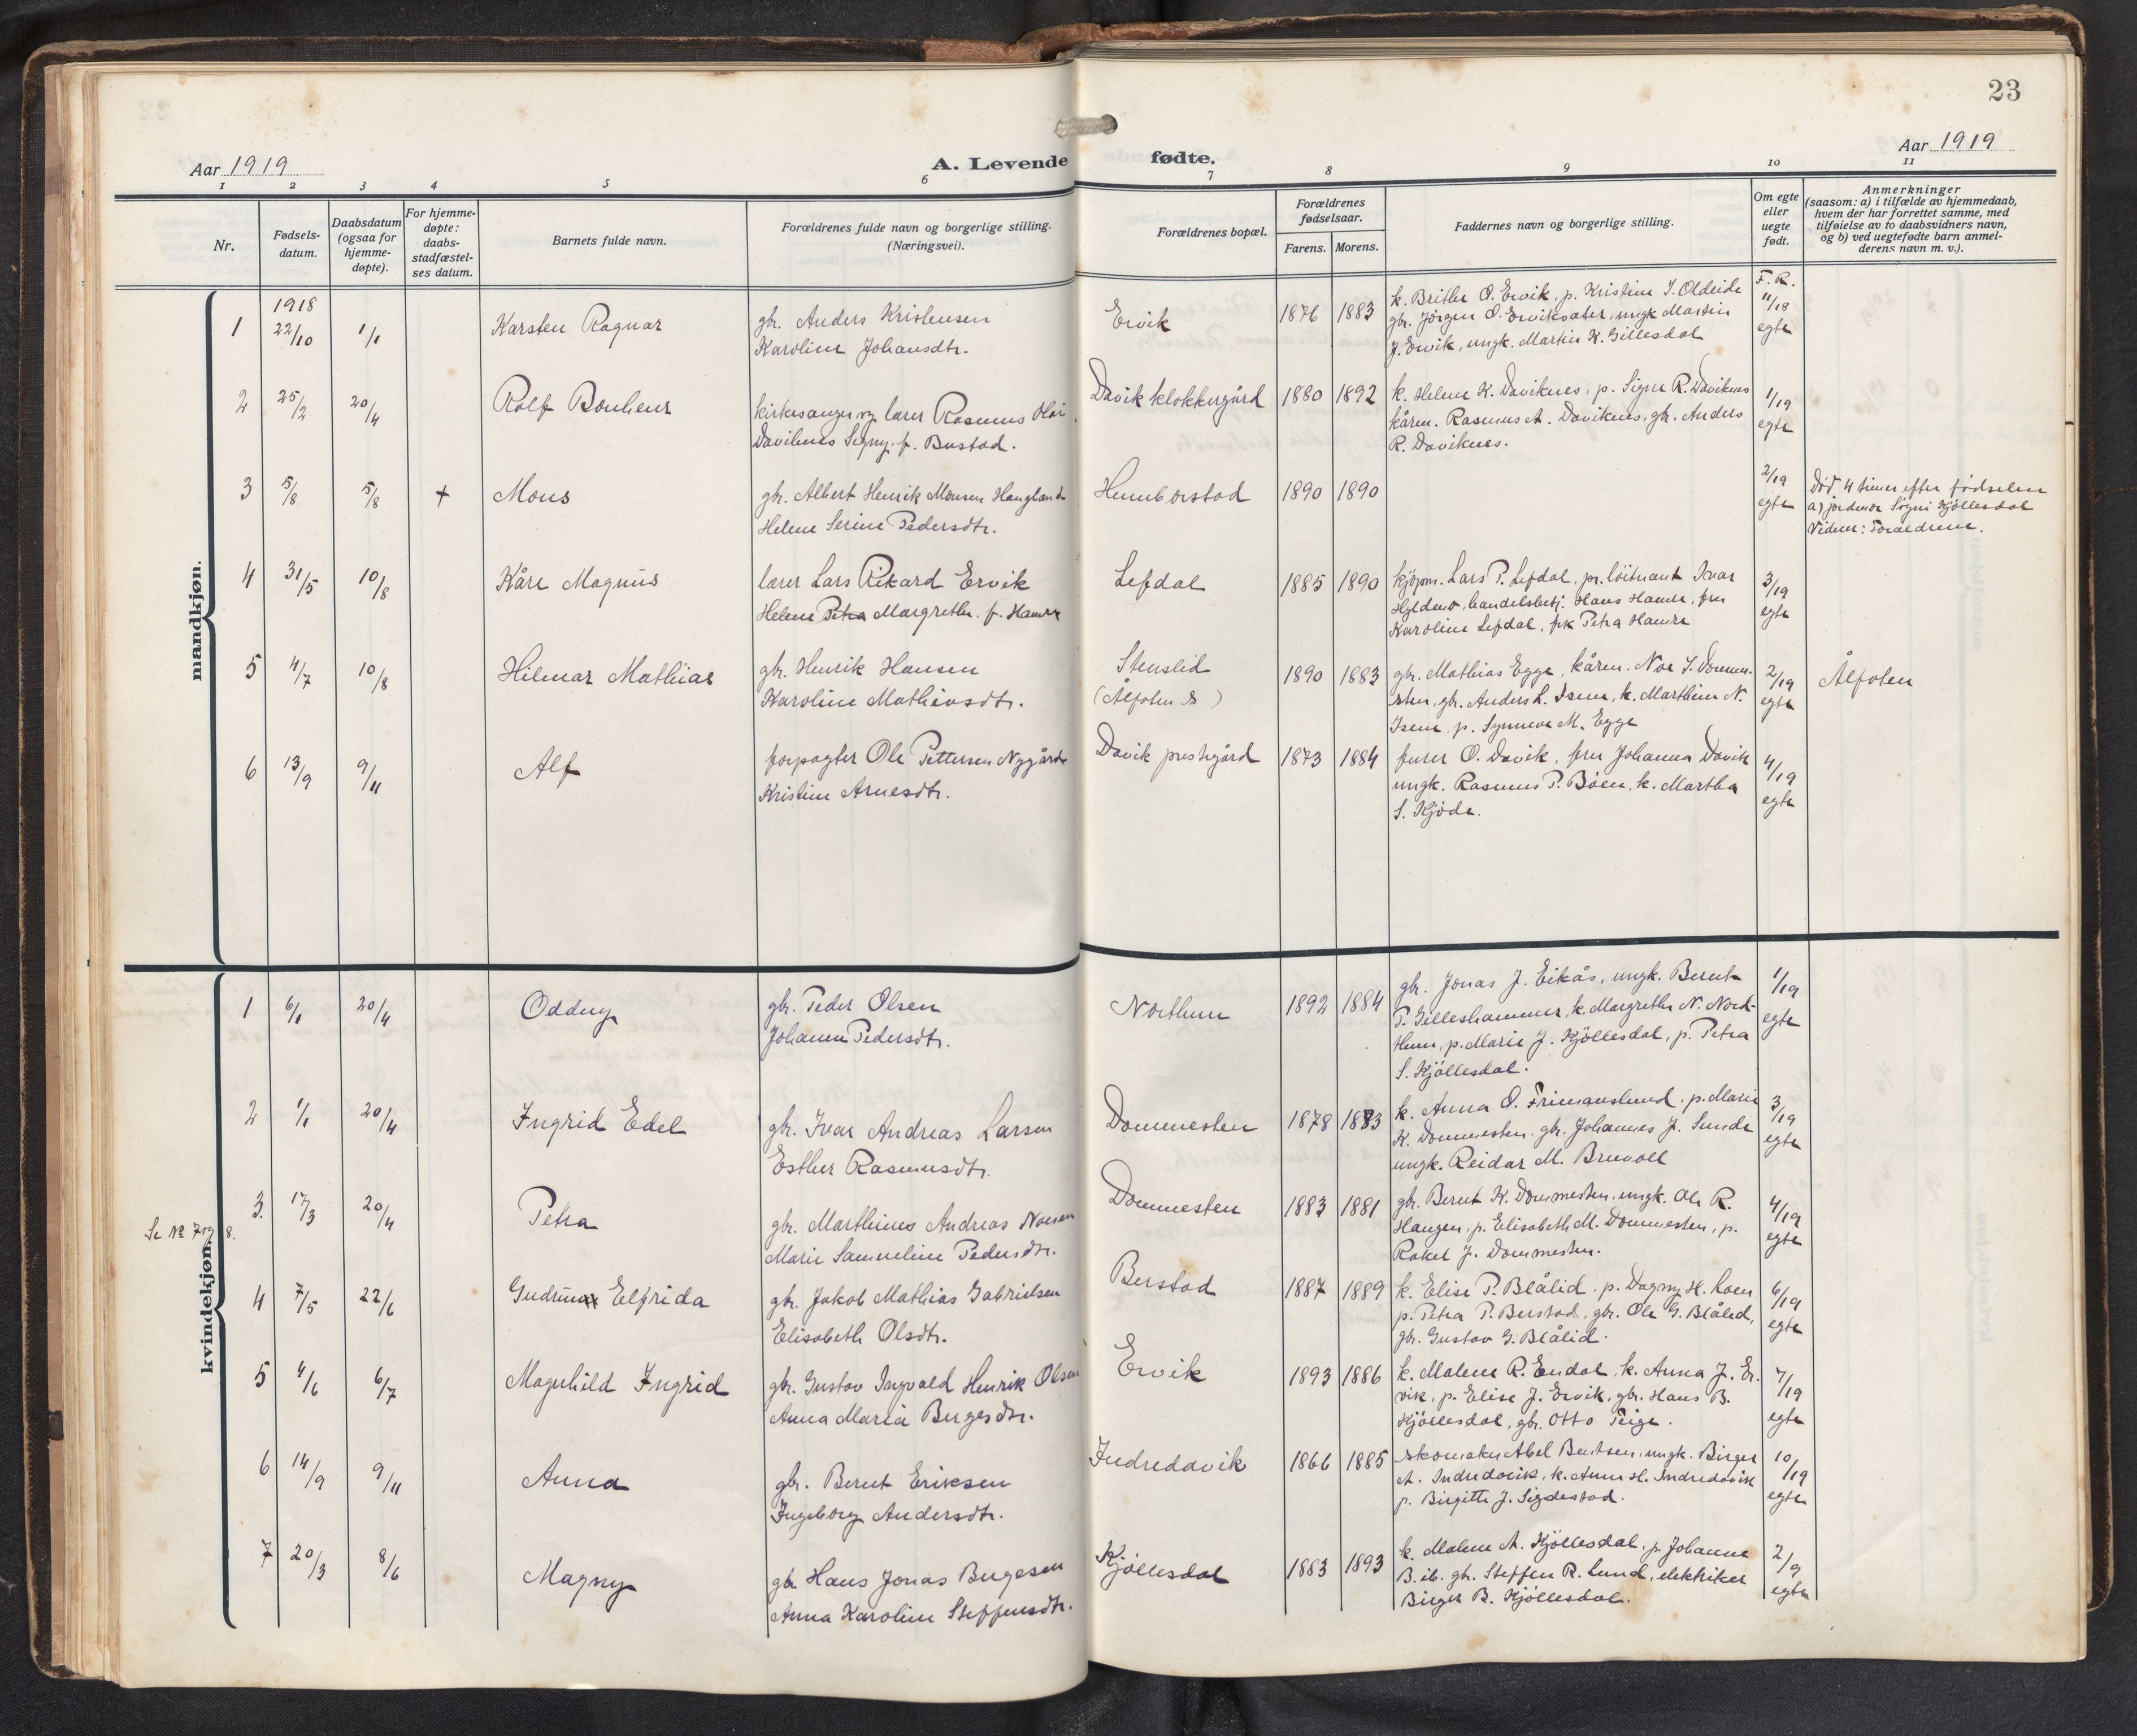 23
Aar 1919
A. Levende
fødte.
Aar 1919
1 2 3 4 5 6 7 8 9 10 11
Nr.
Fødsels-
datum.
Daabsdatum
(ogsaa for
hjemme-
døpte).
For hjemme-
døpte:
daabs-
stadfæstel-
ses datum.
Barnets fulde navn.
Forældrenes fulde navn og borgerlige stilling.
(Næringsvei).
Forældrenes bopæl.
Forældrenes
fødselsaar.
Farens. Morens.
Faddernes navn og borgerlige stilling.
Om egte
eller
uegte
født.
Anmerkninger
(saasom: a) i tilfælde av hjemmedaab,
hvem der har forrettet samme, med
tilføielse av to daabsvidners navn,
og b) ved uegtefødte barn anmel-
derens navn m. v.).
mandkjøn.
1 1918 22/10 1/1 Karsten Ragnar
gbr. Anders Kristensen
Karoline Johansdtr.
Ervik 1876 1883
k. Brithe O. Ervik, p. Kristine J. Oldeide
gbr. Jørgen O. Erviksæter, ungk Martin
J. Ervik, ungk. Martin K. Gillesdal
F. R.
11/18
egte
2 25/2 20/4 Rolf Bonheur
kirkesanger og lærer Rasmus
Daviknes Signy f. Bustad.
Davik klokkergård 1880 1892
k. Helene K. Daviknes, p. Signe R. Daviknes
kårm. Rasmus A. Daviknes, gbr. Anders
R. Daviknes.
1/19
egte
3 5/8 5/8 + Mons
gbr. Albert Henrik Monsen Haugland
Helene Serine Pedersdtr.
Humborstad 1890 1890
2/19
egte
Død 4 timer efter fødselen
a) jordmor Signi Kjøllesdal
Vidner: Forældrene.
4 31/5 10/8 Kåre Magnus
lærer Lars Rikard Ervik
Helene Petra Margrethe f. Hamre
Lefdal 1885 1890
kjøpm. Lars P. Lefdal, pr. løitnant Ivar
handelsbetj. Hans Hamre, fru
Karoline Lefdal, frk Petra Hamre
3/19
egte
5 4/7 10/8 Hilmar Mathias
gbr. Henrik Hansen
Karoline Mathiasdtr.
Stenslid
(Ålfoten s)
1890 1883
gbr. Mathias Egge, kårm. Noe S. Dommer-
sten, gbr. Anders L. Isene, k. Marthine N.
Isene, p. Synneve M. Egge
2/19
egte
Ålfoten
6 13/9 9/11 Alf
forpagter Ole Pettersen Nygård
Kristine Arnesdtr.
Davik prestegård 1873 1884
furer O. Davik, fru Johanna Davik
ungk. Rasmus P. Böen, k. Martha
S. Kjöde.
4/19
egte
kvindekjøn.
1 6/1 20/4 Oddny
gbr. Peder Olsen
Johanne Pedersdtr.
Northun 1892 1884
gbr. Jonas J. Eikås, ungk. Bernt
P. Gilleshammer, k. Margrethe N. Nord-
Hun, p. Marie J. Kjöllesdal, p. Petra
S. Kjöllesdal.
1/19
egte
2 1/1 20/4 Ingrid Edel
gbr. Ivar Andreas Larsen
Esther Rasmusdtr.
Dommesten 1878 1883
k. Anna O. Frimanslund, p. Marie
K. Dommesten, gbr. Johannes J. Sunde
ungk. Reidar M. Bruvoll
3/19
egte
Se No 7 og 8.
3 17/3 20/4 Petra
gbr. Marthinus Andreas Noesen
Marie Samueline Pedersdtr.
Dommesten 1883 1881
gbr. Bernt K. Dommesten, ungk. Ole R.
Haugen, p. Elisabeth M. Dommesten, p.
Rakel J. Dommesten.
4/19
egte
4 7/5 22/6 Gudrun Elfrida
gbr. Jakob Mathias Gabrielsen
Elisabeth Olsdtr.
Berstad 1887 1889
k. Elise P. Blålid, p. Dagny H. Loen
p. Petra P. Berstad, gbr. Ole G. Blålid,
gbr. Gustav G. Blålid.
6/19
egte
5 4/6 6/7 Magnhild Ingrid
gbr. Gustav Ingvald Henrik Olsen
Anna Maria Børgesdtr.
Ervik 1893 1886
k. Malene R. Endal, k. Anna J. Er-
vik, p. Elise J. Ervik, gbr. Hans B.
Kjöllesdal, gbr. Otto Teige.
7/19
egte
6 14/9 9/11 Anna
gbr. Bernt Eriksen
Ingeborg Andersdtr.
Indredavik 1866 1885
skomaker Abel Bentsen, ungk. Birger
A. Indredavik, k. Anne H. Indredavik
p. Birgitte J. Sigdestad.
10/19
egte
7 20/3 8/6 Magny
gbr Hans Jonas Børgesen
Anna Karoline Steffensdtr.
Kjöllesdal 1883 1893
k. Malene A. Kjöllesdal, p. Johanne
B. ib. gbr. Steffen R. Lund, elektriker
Birger B. Kjöllesdal.
2/9
egte